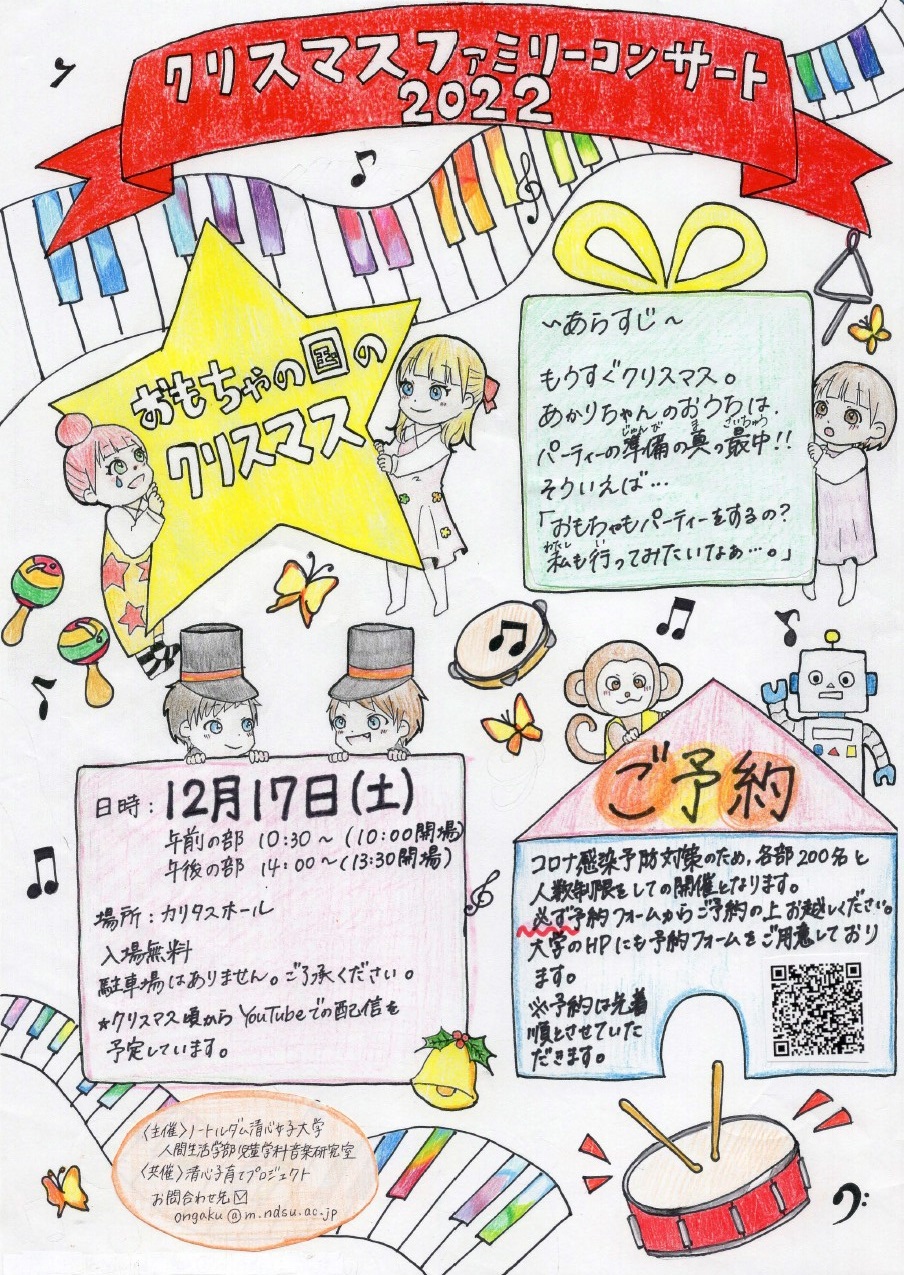 クリスマスファミリーコンサート
2022
おもちゃの国の
クリスマス
～あらすじ～
もうすぐクリスマス。
あかりちゃんのおうちは、
パーティーの準備の真っ最中!!
じゅんび ま さいちゅう
そういえば…
「おもちゃもパーティーをするの?
わたし い
私も行ってみたいなぁ…。」
日時:12月17日(土)
午前の部 10:30～(10:00開場)
午後の部 14:00～(13:30開場)
場所:カリタスホール
入場無料
駐車場はありません。ご了承ください。
★クリスマス頃からYouTubeでの配信を
予定しています。
ご予約
コロナ感染予防対策のため,各部200名と
人数制限をしての開催となります。
必ず予約フォームからご予約の上お越しください。
大学のHPにも予約フォームをご用意しており
ます。
※予約は先着
順とさせていた
だきます。
〈主催〉ノートルダム清心女子大学
人間生活学部児童学科音楽研究室
〈共催〉清心子育てプロジェクト
お問合わせ先✉
ongaku@m.ndsu.ac.jp